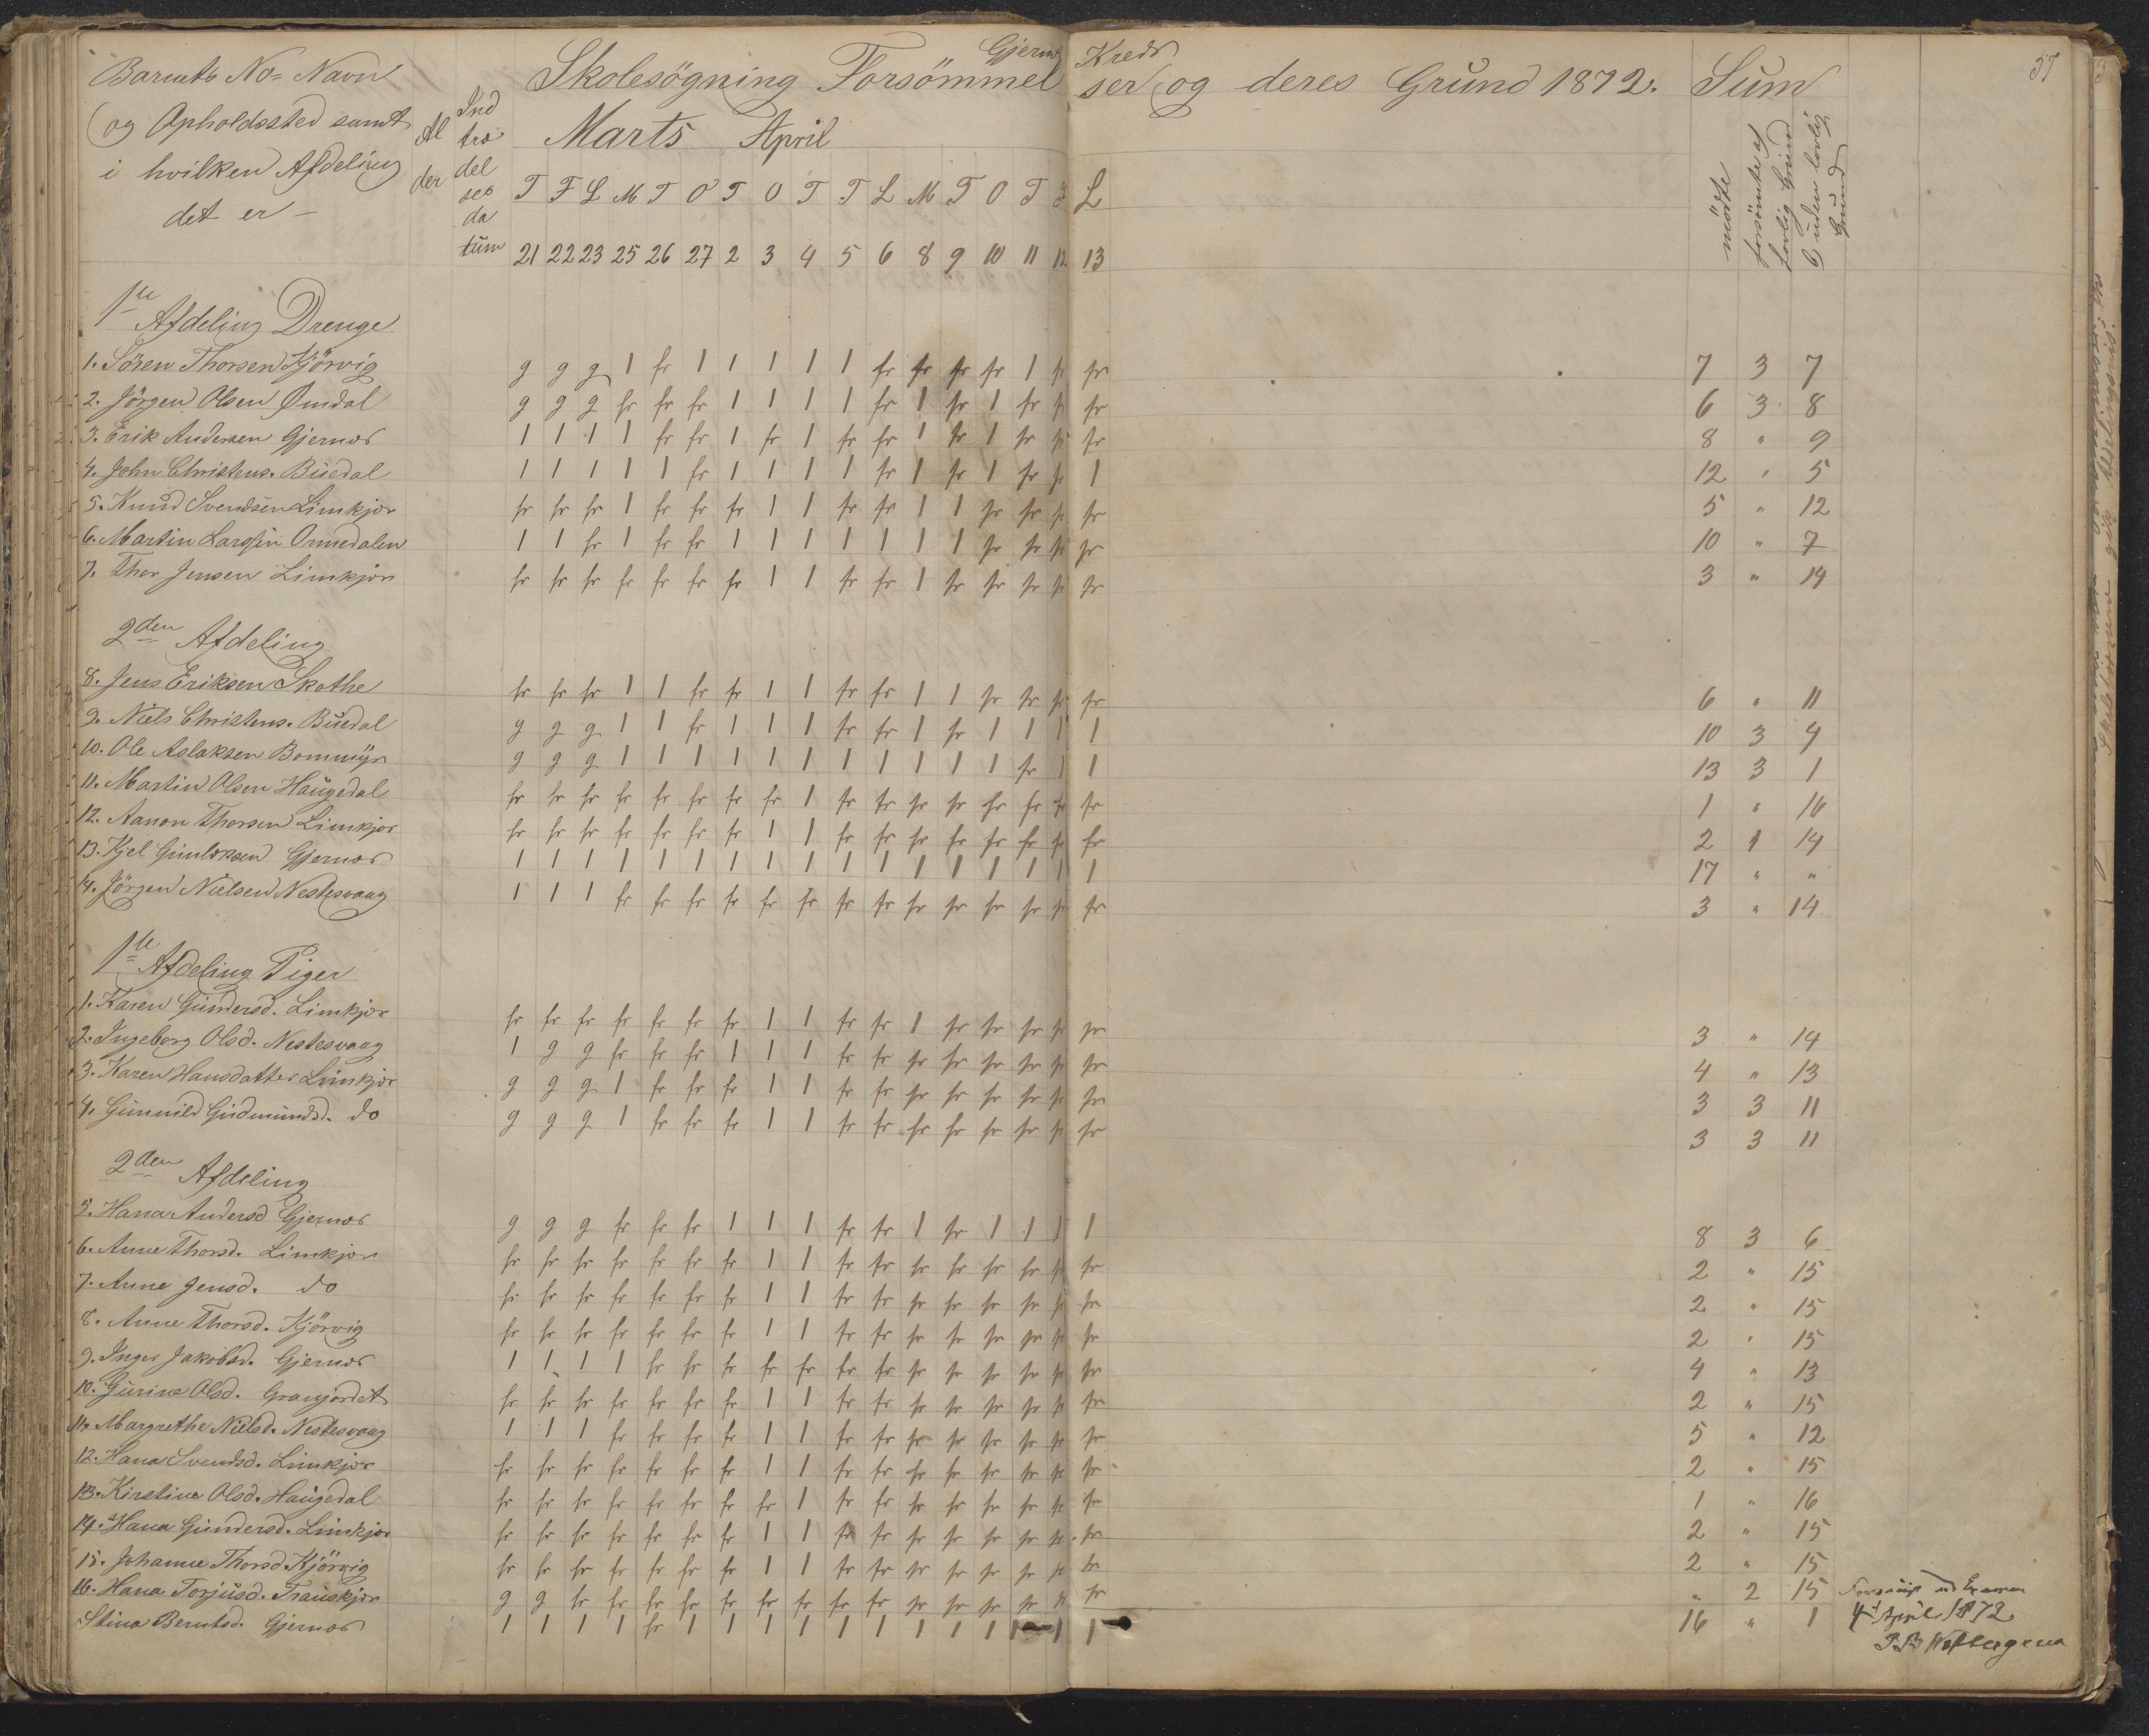 Gjernæs Kreds
Skolesögning Forsömmelser og deres Grund 1872. Sum 57
Barnets No= Navn
og Opholdssted samt
i hvilken Afdeling
det er –
Al
der
Ind
træ
del
ses
da
tum
Marts April
mödte
forsömte af
lovlig Grund
uden lovlig
Grund
T F L M T O T O T T L M T O T F L
21 22 23 25 26 27 2 3 4 5 6 8 9 10 11 12 13
1te Afdeling Drenge
1. Sören Thorsen Kjörvig g g g 1 fr 1 1 1 1 1 fr fr fr fr 1 fr fr 7 3 7
2. Jörgen Olsen Omdal g g g fr fr fr 1 1 1 1 fr 1 fr 1 fr fr fr 6 3 8
3. Erik Andersen Gjernæs 1 1 1 1 fr fr 1 fr 1 fr fr 1 fr 1 fr fr fr 8 " 9
4. John Christens. Buedal 1 1 1 1 1 fr 1 1 1 1 fr 1 fr 1 fr fr 1 12 " 5
5. Knud Svendsen Limkjær fr fr fr 1 fr fr fr 1 1 fr fr 1 1 fr fr fr fr 5 " 12
6. Martin Larssen Ormedalen 1 1 fr 1 fr fr 1 1 1 1 1 1 1 fr fr fr fr 10 " 7
7. Thor Jensen Limkjær fr fr fr fr fr fr fr 1 1 fr fr 1 fr fr fr fr fr 3 " 14
2den Afdeling
8. Jens Eriksen Skothe fr fr fr 1 1 fr fr 1 1 fr fr 1 1 fr fr fr fr 6 " 11
9. Niels Christens. Buedal g g g 1 1 fr 1 1 1 fr fr 1 fr 1 1 1 1 10 3 4
10. Ole Aslaksen Bommyr g g g 1 1 1 1 1 1 1 1 1 1 1 fr 1 1 13 3 1
11. Martin Olsen Haugedal fr fr fr fr fr fr fr fr 1 fr fr fr fr fr fr fr fr 1 " 16
12. Aanon Thorsen Limkjær fr fr fr fr fr fr fr 1 1 fr fr fr fr fr fr fr fr 2 1 14
13. Kjel Gunleksen Gjernæs 1 1 1 1 1 1 1 1 1 1 1 1 1 1 1 1 1 17 " "
14. Jörgen Nielsen Nestesvaag 1 1 1 fr fr fr fr fr fr fr fr fr fr fr fr fr fr 3 " 14
1te Afdeling Piger
1. Karen Gundersd. Limkjær fr fr fr fr fr fr fr 1 1 fr fr 1 fr fr fr fr fr 3 " 14
2. Ingeborg Olsd. Nestesvaag 1 g g fr fr fr 1 1 1 fr fr fr fr fr fr fr fr 4 " 13
3. Karen Hansdatter Limkjær g g g 1 fr fr fr 1 1 fr fr fr fr fr fr fr fr 3 3 11
4. Gunnild Gudmundsd. do g g g 1 fr fr fr 1 1 fr fr fr fr fr fr fr fr 3 3 11
2den Afdeling
5. Hana Andersd Gjernæs g g g fr fr fr 1 1 1 fr fr 1 fr 1 1 1 1 8 3 6
6. Anne Thorsd. Limkjær fr fr fr fr fr fr fr 1 1 fr fr fr fr fr fr fr fr 2 " 15
7. Anne Jensd. do fr fr fr fr fr fr fr 1 1 fr fr fr fr fr fr fr fr 2 " 15
8. Anne Thorsd. Kjörvig fr fr fr fr fr fr fr 1 1 fr fr fr fr fr fr fr fr 2 " 15
9. Inger Jakobsd. Gjernæs 1 1 1 1 fr fr fr fr fr fr fr fr fr fr fr fr fr 4 " 13
10. Gurine Olsd. Granjordet fr fr fr fr fr fr fr 1 1 fr fr fr fr fr fr fr fr 2 " 15
11. Margrethe Nielsd. Nestesvaag 1 1 1 fr fr fr fr 1 1 fr fr fr fr fr fr fr fr 5 " 12
12. Hana Svendsd. Limkjær fr fr fr fr fr fr fr 1 1 fr fr fr fr fr fr fr fr 2 " 15
13. Kirstine Olsd. Haugedal fr fr fr fr fr fr fr fr 1 fr fr fr fr fr fr fr fr 1 " 16
14. Hana Gundersd. Limkjær fr fr fr fr fr fr fr 1 1 fr fr fr fr fr fr fr fr 2 " 15
15. Johanne Thorsd. Kjörvig fr fr fr fr fr fr fr 1 1 fr fr fr fr fr fr fr fr 2 " 15
16. Hana Torjusd. Transkjær g g fr fr fr fr fr fr fr fr fr fr fr fr fr fr fr " 2 15
Stina Berntsd. Gjernæs 1 1 1 1 fr 1 1 1 1 1 1 1 1 1 1 1 1 16 " 1
ved Examen
4d April 1872.